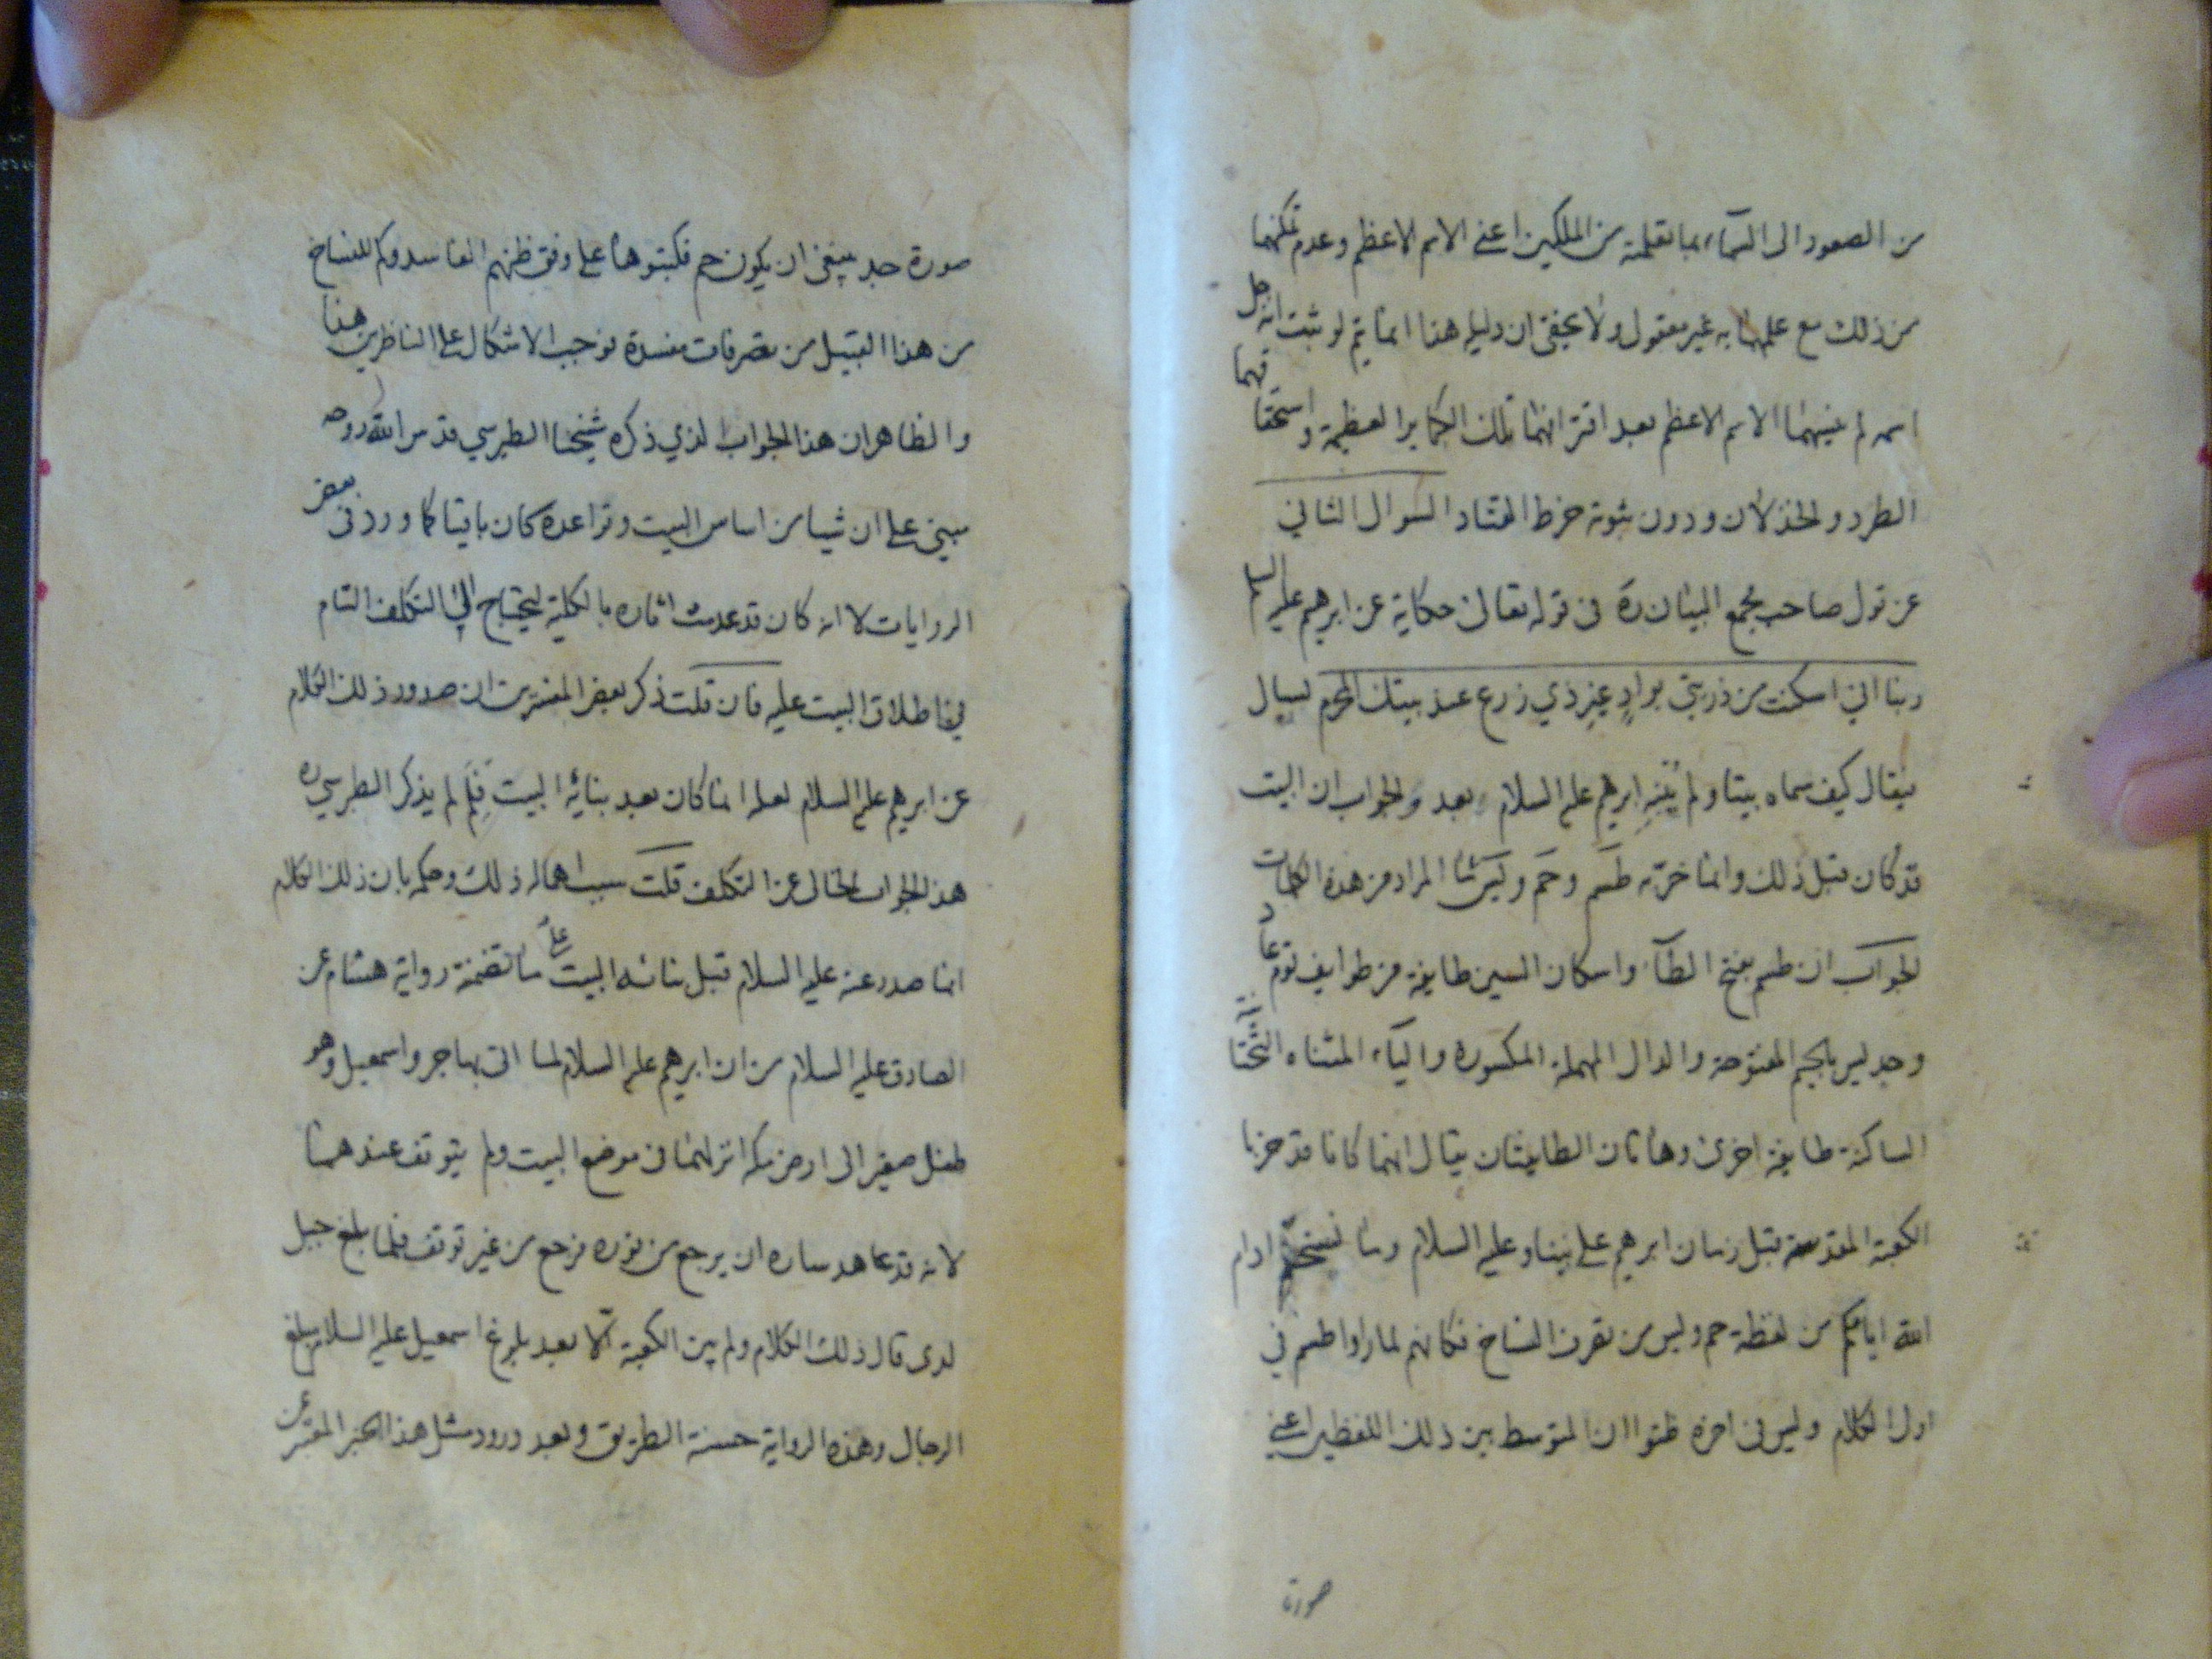 من الصعود الى السماء بما تعلمته من الملكين اعني الاسم الاعظم وعدم تمكنهما
من ذلك مع علمهما به غير معقول ولا يخفى ان دليله هذا انما يتم لو ثبت انه جل
اسمه لم ينسهما الاسم الاعظم بعد اقترافهما تلك الكبائر العظيمة واستحقاقهما
الطرد والخذلان ودون ثبوته خرط القتاد السوال الثاني
عن قول صاحب مجمع البيان ره في قوله تعالى حكاية عن ابرهيم عليه السلم
ربنا اني اسكنت من ذريتي بوادٍ غير ذي زرع عند بيتك المحرم يسال
فيقال كيف سماه بيتا ولم يبنه ابرهيم عليه السلام بعد والجواب ان البيت
قد كان قبل ذلك وانما خربه طسم وحم وليس ما المراد من هذه الكلمات
الجواب ان طسم بفتح الطاء واسكان السين طايفة من طوايف قوم عاد
وجديس بالجيم المفتوحة والدال المهملة المكسورة والياء المثناه التحتانية
الساكنة طايفة اخرى وهاتان الطايفتان يقال انهما كانا قد خربا
الكعبة المقدسة قبل زمان ابرهيم على نبينا وعليه السلام وما نسختكم ادام
الله ايامكم من لفظة حم وليس من تصرف النساخ فكانهم لما راوا طسم في
اول الكلام وليس في اخره ظنوا ان المتوسط بين ذلك اللفظين اعني
صورة
صورة جد ينبغي ان يكون حم فكتبوها على وفق ظنهم الفاسد وكم للنساخ
من هذا القبيل من تصرفات مفسدة توجب الاشكال على الناظرين هذا
والظاهر ان هذا الجواب الذي ذكره شيخنا الطبرسي قدس الله روحه
مبني على ان شيا من اساس البيت وقواعده كان باقيا كما ورد في بعض
الروايات لا انه كان قد عدمت اثاره بالكلية ليحتاج الى التكلف التام
في اطلاق البيت عليه فان قلت ذكر بعض المفسرين ان صدور ذلك الكلام
عن ابرهيم عليه السلام لعله انما كان بعد بنائه البيت فلم لم يذكر الطبرسي ره
هذا الجواب الخالي عن التكلف قلت سبب اهماله ذلك وحكمه بان ذلك الكلام
انما صدر عنه عليه السلام قبل بنائه البيت على ما تضمنته رواية هشام عن
الصادق عليه السلام من ان ابرهيم عليه السلام لما اتى بهاجر واسمعيل وهو
طفل صغير الى ارض مكه انزلهما في موضع البيت ولم يتوقف عندهما
لانه قد عاهد ساره ان يرجع من فوره فرجع من غير توقف فلما بلغ جبل
لدى قال ذلك الكلام ولم يبن الكعبة الا بعد بلوغ اسمعيل عليه السلام مبلغ
الرجال وهذه الرواية حسنة الطريق وبعد ورود مثل هذا الخبر المعتبر عن